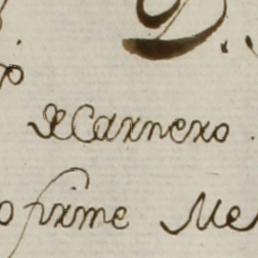 D.
de Carnero.
firme Me